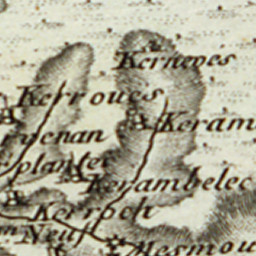 Kerneves
Kerroues
Keram
uenan
plantei
Kerambelec
Kerroch
Neuf
Mesmou